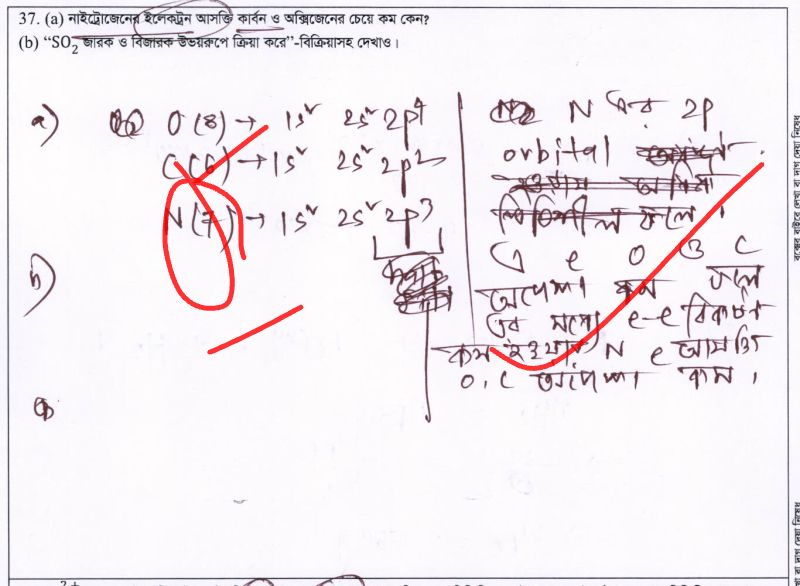 37. (a) নাইট্রোজেনের ইলেকট্রন আসক্তি কার্বন ও অক্সিজেনের চেয়ে কম কেন?
(b) “SO₂ জারক ও বিজারক উভয়রূপে ক্রিয়া করে”-বিক্রিয়াসহ দেখাও।
a) O (8) → 1s² 2s² 2p⁴
C (6) → 1s² 2s² 2p²
N (7) → 1s² 2s² 2p³
b)
N এর 2p
orbital
স্থিতিশীল ফলে।
e O ও C
অপেক্ষা কম ফলে
এর মধ্যে e-e বিকর্ষণ
কম হওয়ায় N e আসক্তি
O, C অপেক্ষা কম।
বক্সের বাইরে লেখা বা দাগ দেয়া নিষেধ
বা দাগ দেয়া নিষেধ
2+